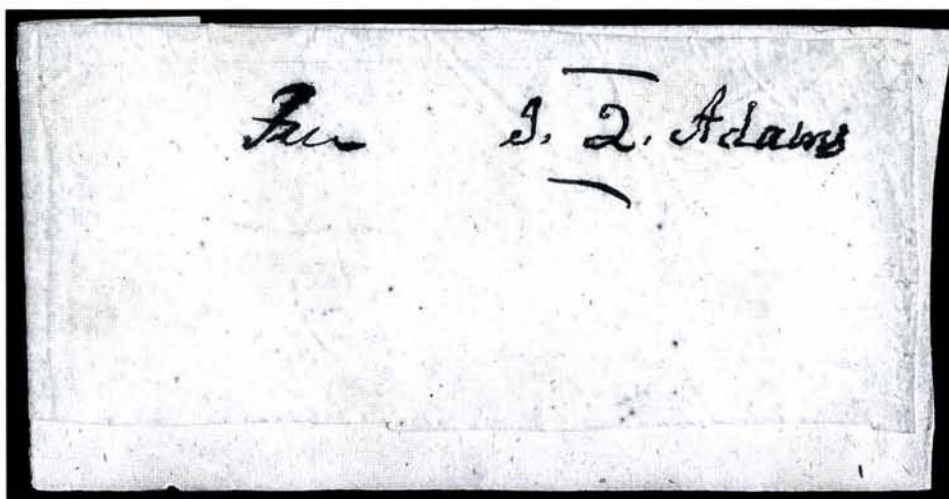 Free J. Q. Adams